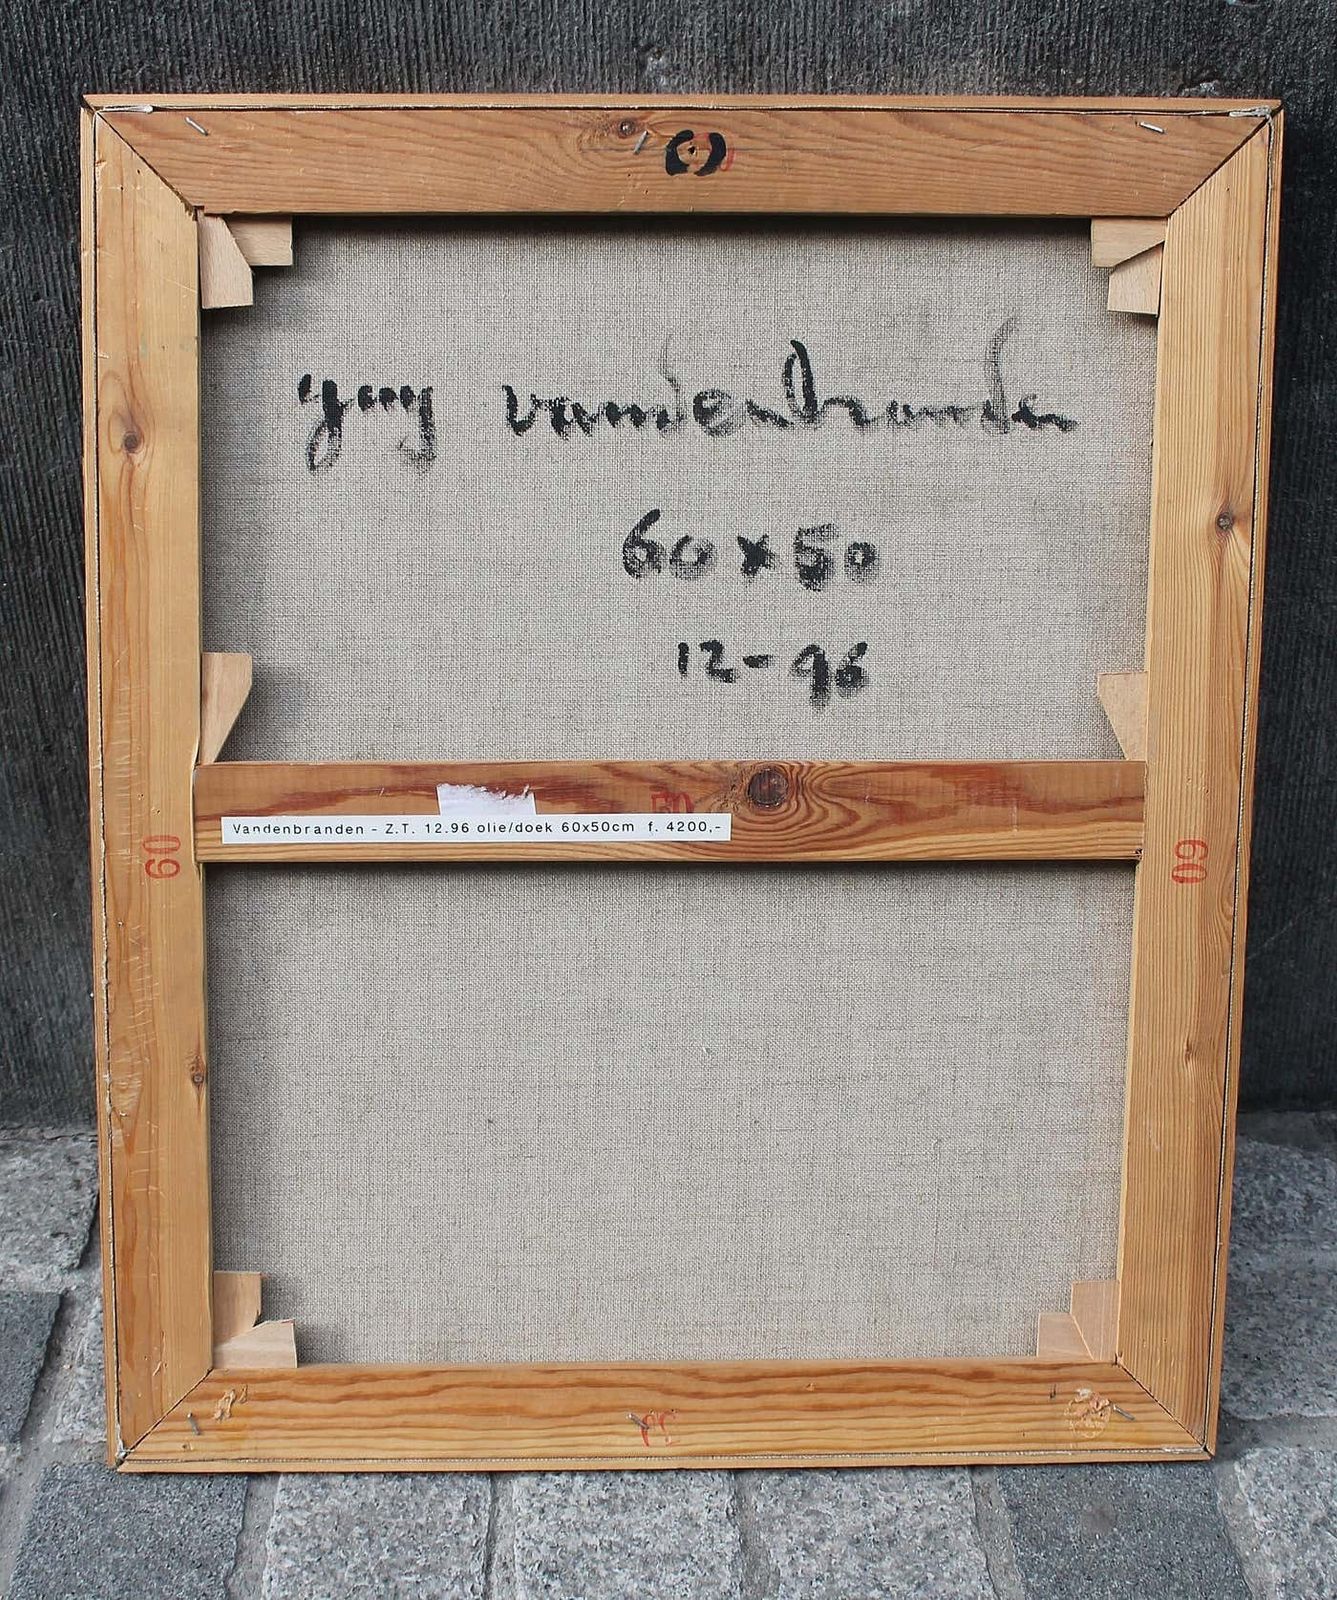 guy vandenbranden
60x50
12-96
50
Vandenbranden - Z.T. 12.96 olie/doek 60x50cm f. 4200,-
60
60